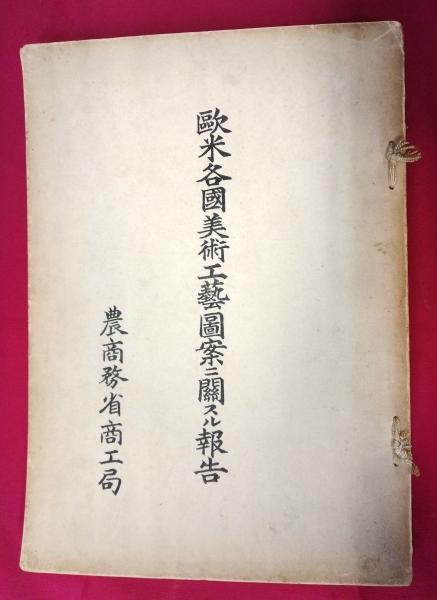 歐米各國美術工藝圖案ニ關スル報告
農商務省商工局